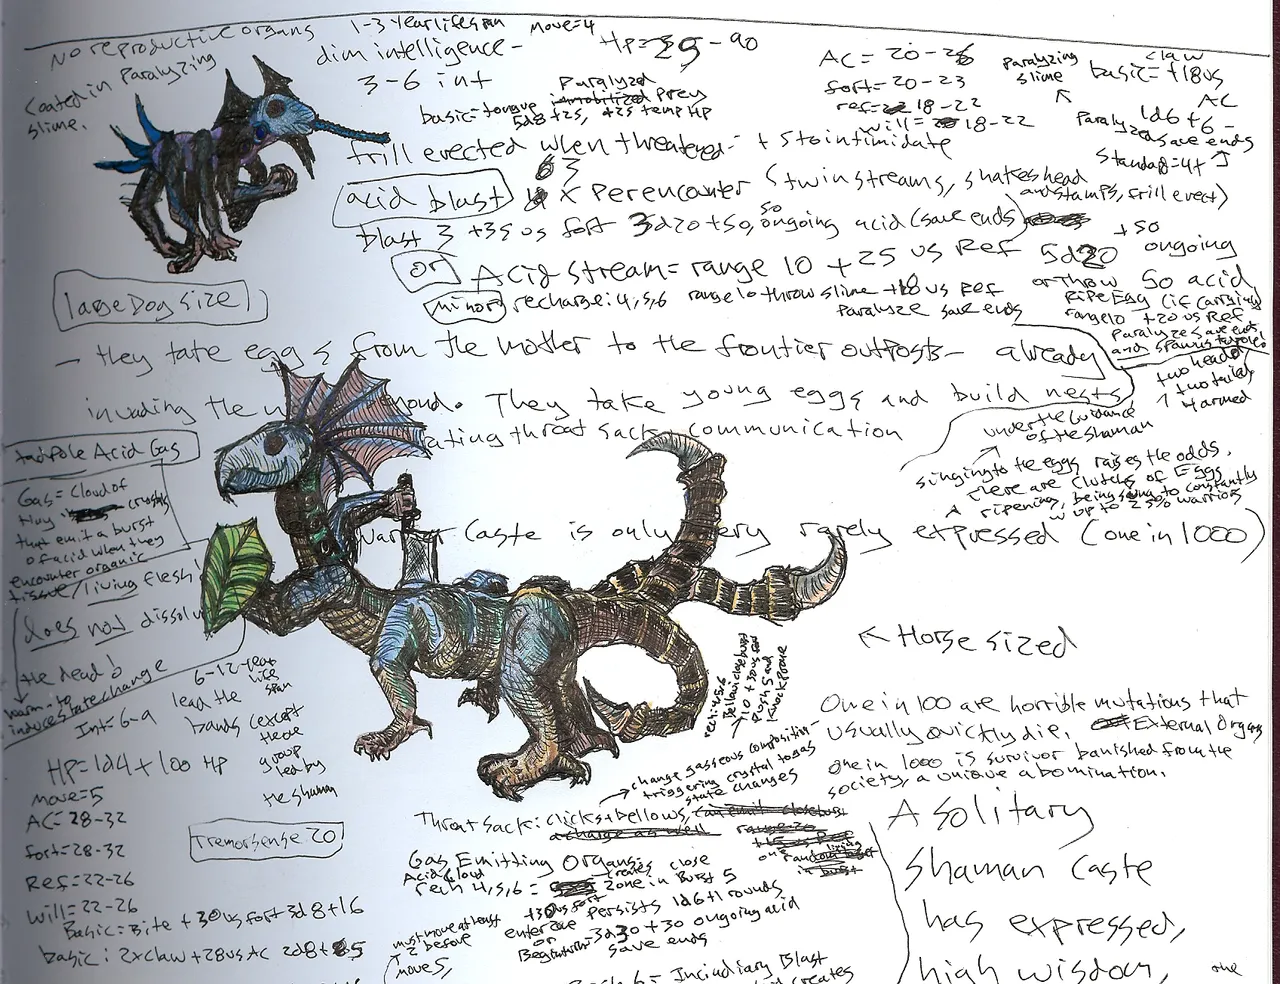 No reproductive organs
coated in Paralyzing
slime.
1-3 year lifespan
dim intelligence -
3-6 int
Move=4
HP=29-90
basic=tongue Paralyzed Prey
5d8+25, +25 temp HP
AC = 20-26
fort=20-23
ref= 18-22
will= 18-22
Paralyzing
slime
claw
basic=+18 vs
AC
1d6+6-
Paralyze
save ends
Standard=4+
frill erected when threatened- +5 to intimidate
acid blast
63
X Per encounter (twin streams, shakes head
and stamps, frill erect)
blast 3 +35 vs fort 3d20+50, 50 ongoing acid (save ends)
or
Acid stream=range 10 +25 vs Ref 5d20 +50
ongoing
50 acid
minor
recharge: 4,5,6 range 10 throw slime +18 vs Ref
Paralyze save ends
or throw
ripe Egg (if carrying
range 10 +20 vs Ref
Paralyze save ends
and spawns tadpoles
large Dog size
- they take eggs from the mother to the frontier outposts- already
invading the mond. They take young eggs and build nests
ating throat sack communication
two head
two tailed
4 armed
under the Guidance
of the shaman
singing to the eggs raises the odds.
There are clutches of Eggs
ripening, being sung to constantly
up to 25% warriors
tadpole Acid Gas
Gas= Cloud of
tiny crystals
that emit a burst
of acid when they
encounter organic
tissue/living flesh
does not dissolv
the dead
warm- to
induce state change
Caste is only very rarely expressed (one in 1000)
← Horse sized
6-12-year
life
span
Int=6-9
lead the
bands (except
the one
group
led by
the shaman
HP=1d4+100 HP
move=5
AC=28-32
fort=28-32
Ref=22-26
will=22-26
Basic=Bite +30 vs fort 3d8+16
basic: 2xclaw +28 vs AC 2d8+85
Tremorsense 20
rech: 4,5,6
Bellow: close burst
10 +30 vs fort
Push 5 and
Knock Prone
change gaseous composition-
triggering crystal to gas
state changes
Throat sack: clicks+bellows,
Gas Emitting Organs:
Acid Cloud
rech 4,5,6 = creates close
zone in Burst 5
+30 vs fort
Persists 1d6+1 rounds
enterzone
or
Begin turn 3d30+30 ongoing acid
save ends
must move at least
2 before
move 5,
Rech 6= Incindiary Blast
creates
One in 100 are horrible mutations that
usually quickly die. External Organs
one in 1000 is survivor banished from the
society, a unique abomination.
A solitary
shaman caste
has expressed,
high wisdom, the